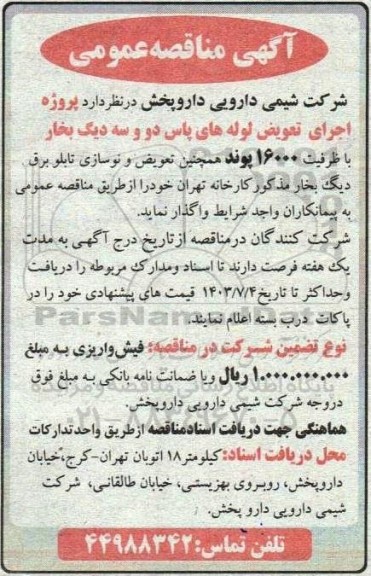 آگهی مناقصه عمومی
شرکت شیمی دارویی داروپخش درنظردارد پروژه
اجرای تعویض لوله های پاس دو و سه دیگ بخار
با ظرفیت ۱۶۰۰۰ پوند همچنین تعویض و نوسازی تابلو برق
دیگ بخار مذکور کارخانه تهران خودرا ازطریق مناقصه عمومی
به پیمانکاران واجد شرایط واگذار نماید.
شرکت کنندگان درمناقصه ازتاریخ درج آگهی به مدت
یک هفته فرصت دارند تا اسناد ومدارک مربوطه را دریافت
وحداکثر تا تاریخ ۱۴۰۳/۷/۴ قیمت های پیشنهادی خود را در
پاکات درب بسته اعلام نمایند.
نوع تضمین شرکت در مناقصه: فیش واریزی به مبلغ
۱.۰۰۰.۰۰۰.۰۰۰ ریال ویا ضمانت نامه بانکی به مبلغ فوق
دروجه شرکت شیمی دارویی داروپخش.
هماهنگی جهت دریافت اسنادمناقصه ازطریق واحدتدارکات
محل دریافت اسناد: کیلومتر۱۸ اتوبان تهران-کرج،خیابان
داروپخش، روبروی بهزیستی، خیابان طالقانی، شرکت
شیمی دارویی دارو پخش.
تلفن تماس: ۴۴۹۸۸۳۴۲